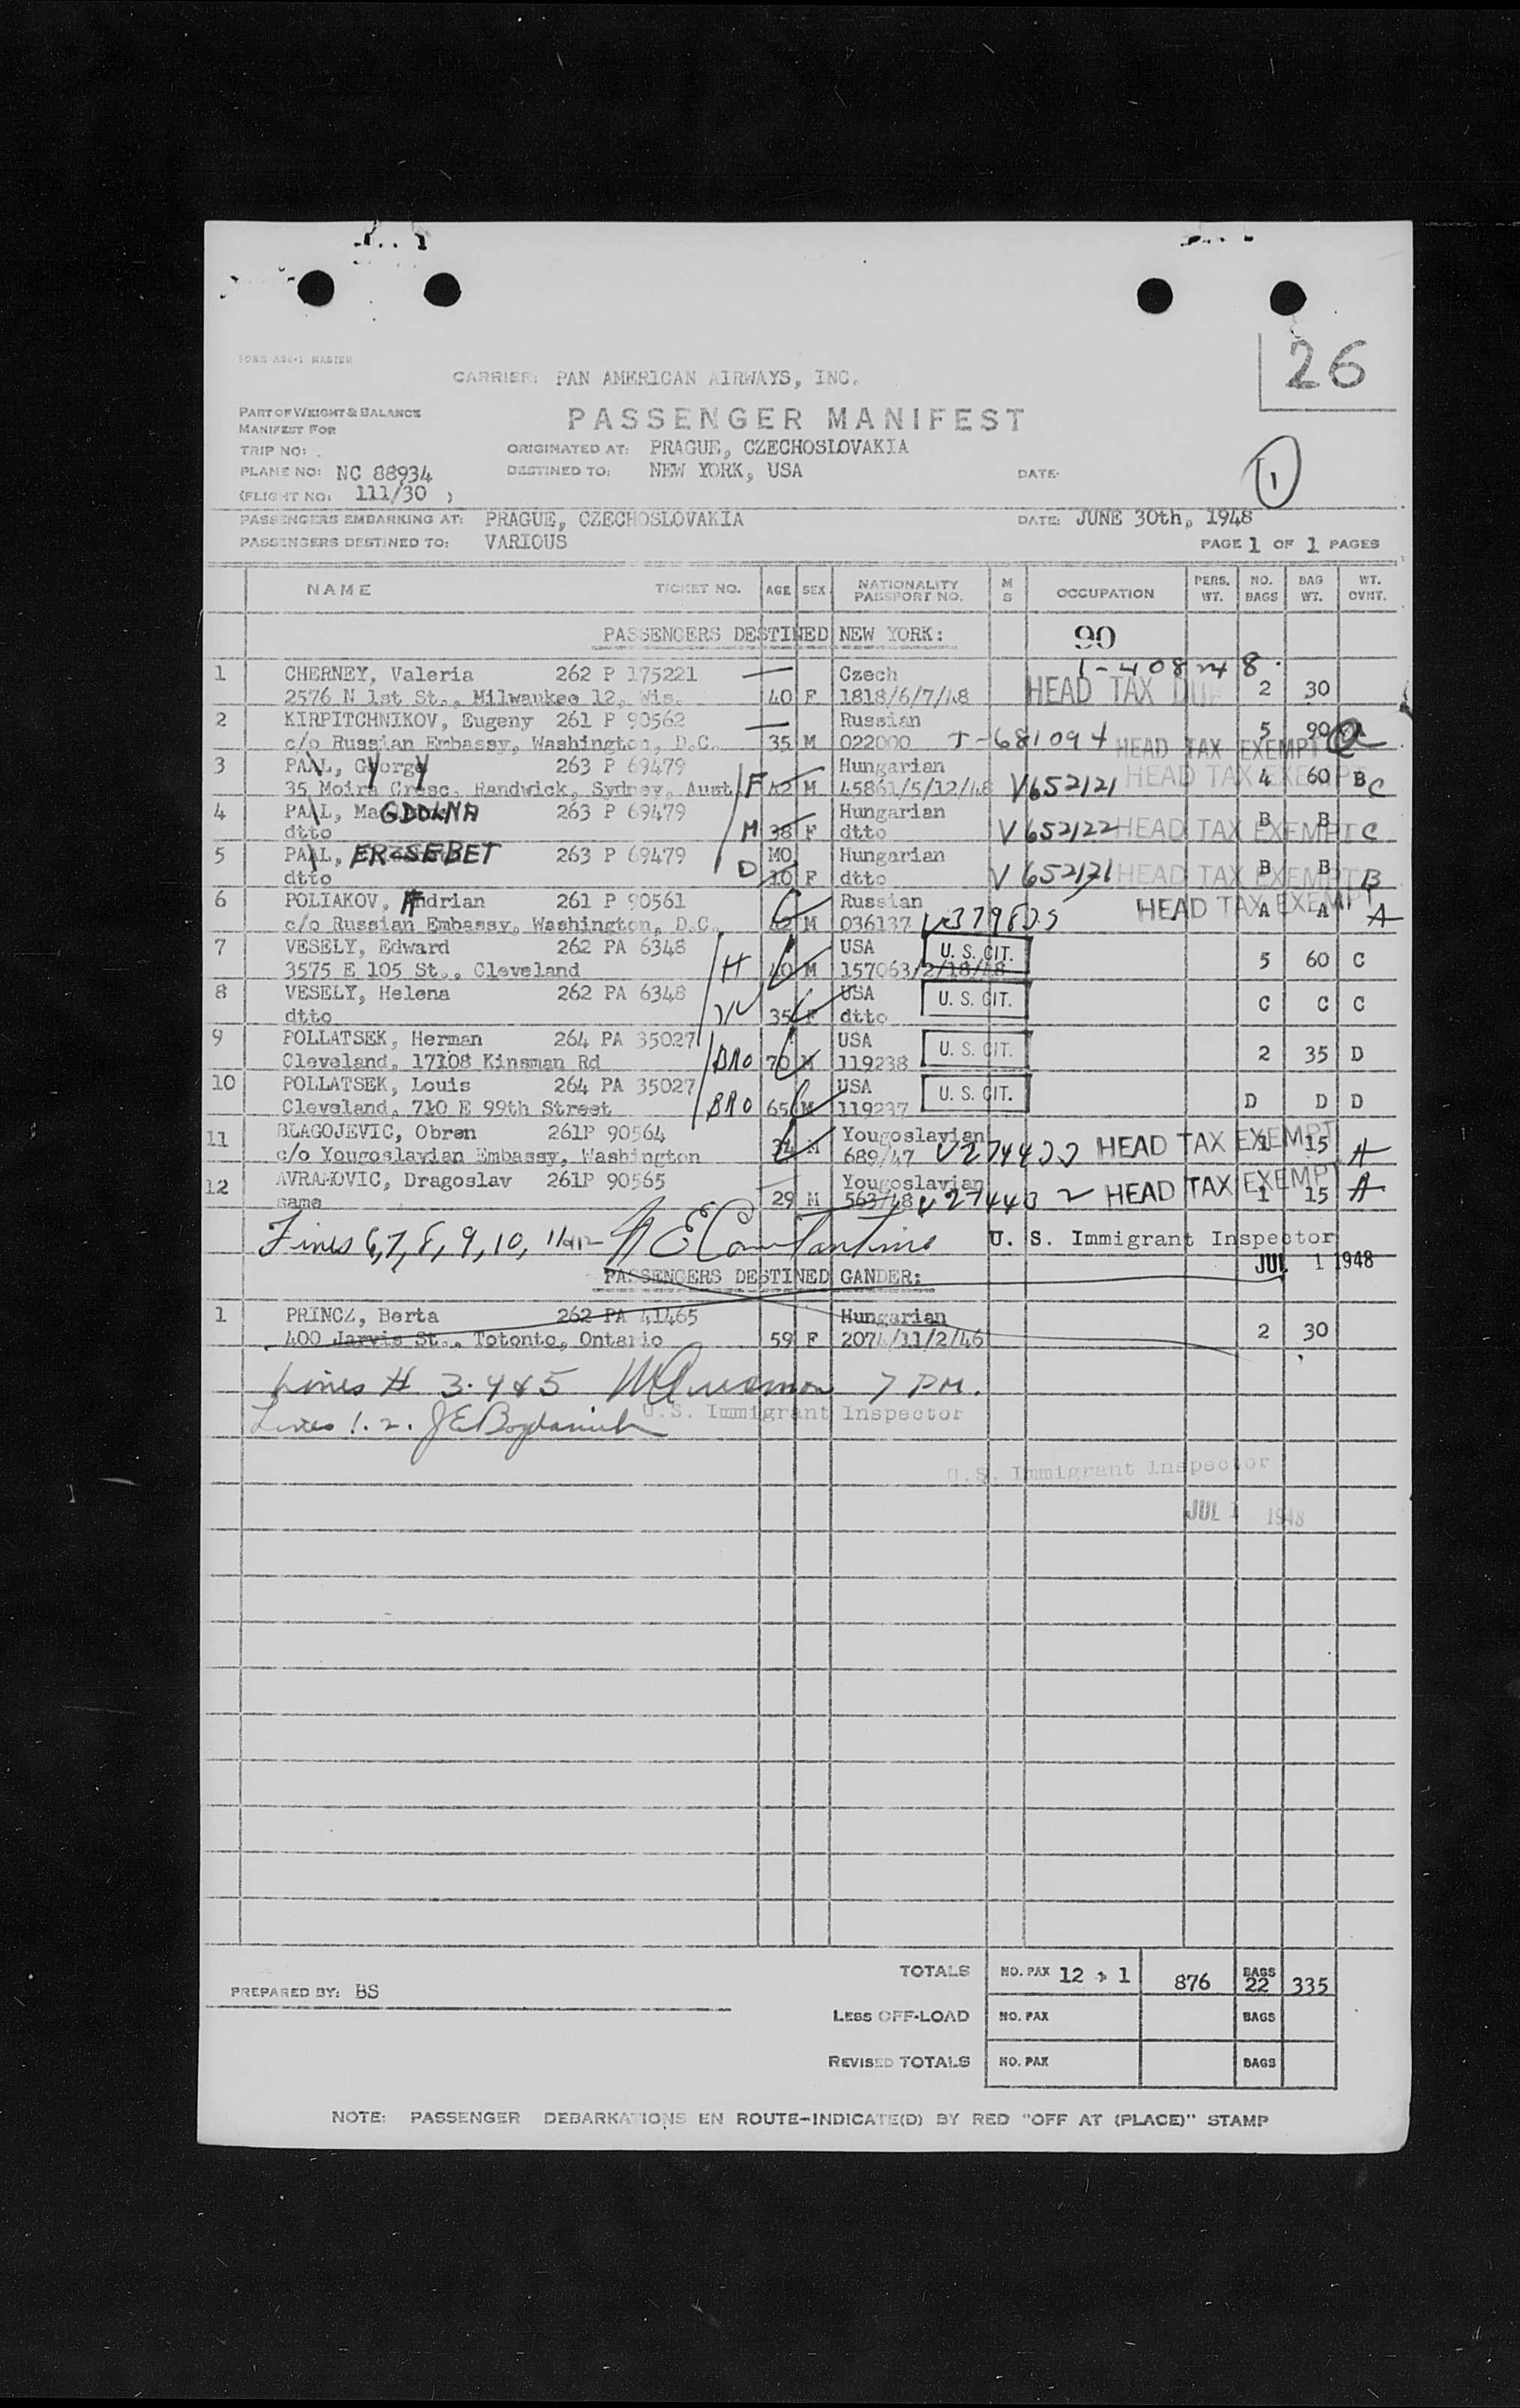 FORM ASU-1 MASTER
26
CARRIER: PAN AMERICAN AIRWAYS, INC.
PART OF WEIGHT & BALANCE
MANIFEST FOR
PASSENGER MANIFEST
TRIP NO: .
ORIGINATED AT: PRAGUE, CZECHOSLOVAKIA
PLANE NO: NC 88934
DESTINED TO: NEW YORK, USA
DATE:
1
(FLIGHT NO: 111/30 )
PASSENGERS EMBARKING AT: PRAGUE, CZECHOSLOVAKIA DATE: JUNE 30th, 1948
PASSENGERS DESTINED TO: VARIOUS PAGE 1 OF 1 PAGES
NAME TICKET NO. AGE SEX NATIONALITY PASSPORT NO. M S OCCUPATION PERS. WT. NO. BAGS BAG WT. WT. OVHT.
PASSENGERS DESTINED NEW YORK: 90
1 CHERNEY, Valeria 262 P 175221 Czech
2576 N 1st St., Milwaukee 12, Wis. 40 F 1818/6/7/48 HEAD TAX DUE 2 30
2 KIRPITCHNIKOV, Eugeny 261 P 90562 Russian 5 90
c/o Russian Embassy, Washington, D.C. 35 M 022000 T-681094 HEAD TAX EXEMPT
3 PAAL, George 263 P 69479 Hungarian HEAD TAX EXEMPT 4 60 B C
35 Moira Cresc. Randwick, Sydney, Aust F 42 M 45861/5/12/48 V652121
4 PAAL, MaGDOLNA 263 P 69479 Hungarian B B
dtto M 38 F dtto V652122 HEAD TAX EXEMPT C
5 PAAL, ERZSEBET 263 P 69479 MO Hungarian B B
dtto D 10 F dtto V 652121 HEAD TAX EXEMPT B
6 POLIAKOV, Andrian 261 P 90561 Russian HEAD TAX EXEMPT A A A
c/o Russian Embassy, Washington, D.C. 42 M 036137
7 VESELY, Edward 262 PA 6348 USA U. S. CIT.
3575 E 105 St., Cleveland H 40 M 157063/2/18/48 5 60 C
8 VESELY, Helena 262 PA 6348 USA U. S. CIT. C C C
dtto W 35 F dtto
9 POLLATSEK, Herman 264 PA 35027 USA U. S. CIT.
Cleveland, 17108 Kinsman Rd BRO 70 M 119238 2 35 D
10 POLLATSEK, Louis 264 PA 35027 USA U. S. CIT.
Cleveland, 710 E 99th Street BRO 65 M 119237 D D D
11 BLAGOJEVIC, Obren 261P 90564 Yougoslavian HEAD TAX EXEMPT 1 15 A
c/o Yougoslavian Embassy, Washington 34 M 689/47
12 AVRAMOVIC, Dragoslav 261P 90565 Yougoslavian HEAD TAX EXEMPT 1 15 A
same 29 M 563/48 V274432
6, 7, 8, 9, 10, U. S. Immigrant Inspector
JUL 1 1948
PASSENGERS DESTINED GANDER:
1 PRINCZ, Berta 262 PA 41465 Hungarian
400 Jarvis St., Totonto, Ontario 59 F 2074/11/2/46 2 30
Lines # 3. 4 & 5 7 PM.
Lines 1. 2. U.S. Immigrant Inspector
U.S. Immigrant Inspector
JUL 1 1948
TOTALS NO. PAX 12 + 1 876 BAGS 22 335
PREPARED BY: BS
LESS OFF-LOAD NO. PAX BAGS
REVISED TOTALS NO. PAX BAGS
NOTE: PASSENGER DEBARKATIONS EN ROUTE-INDICATE(D) BY RED "OFF AT (PLACE)" STAMP